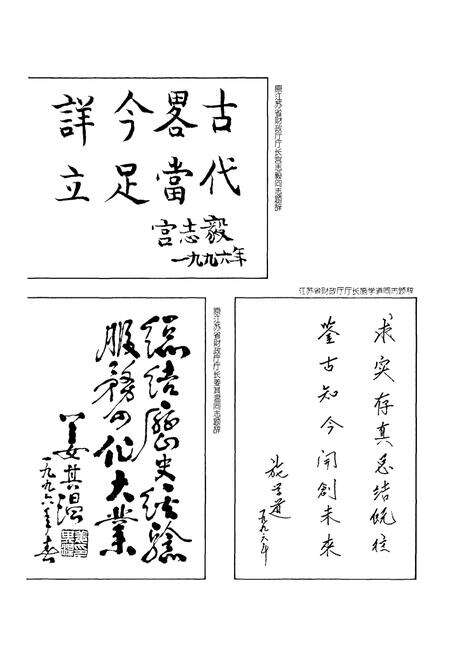 詳今畧古
立足當代
宫志毅
一九九六年
原江苏省财政厅厅长宫志毅同志题辞
江苏省财政厅厅长施学道同志题辞
求实存真总结既往
鉴古知今開創未來
施学道
一九九六年
原江苏省财政厅厅长姜其温同志题辞
總结歷史经驗
服務四化大業
姜其温
一九九六年春